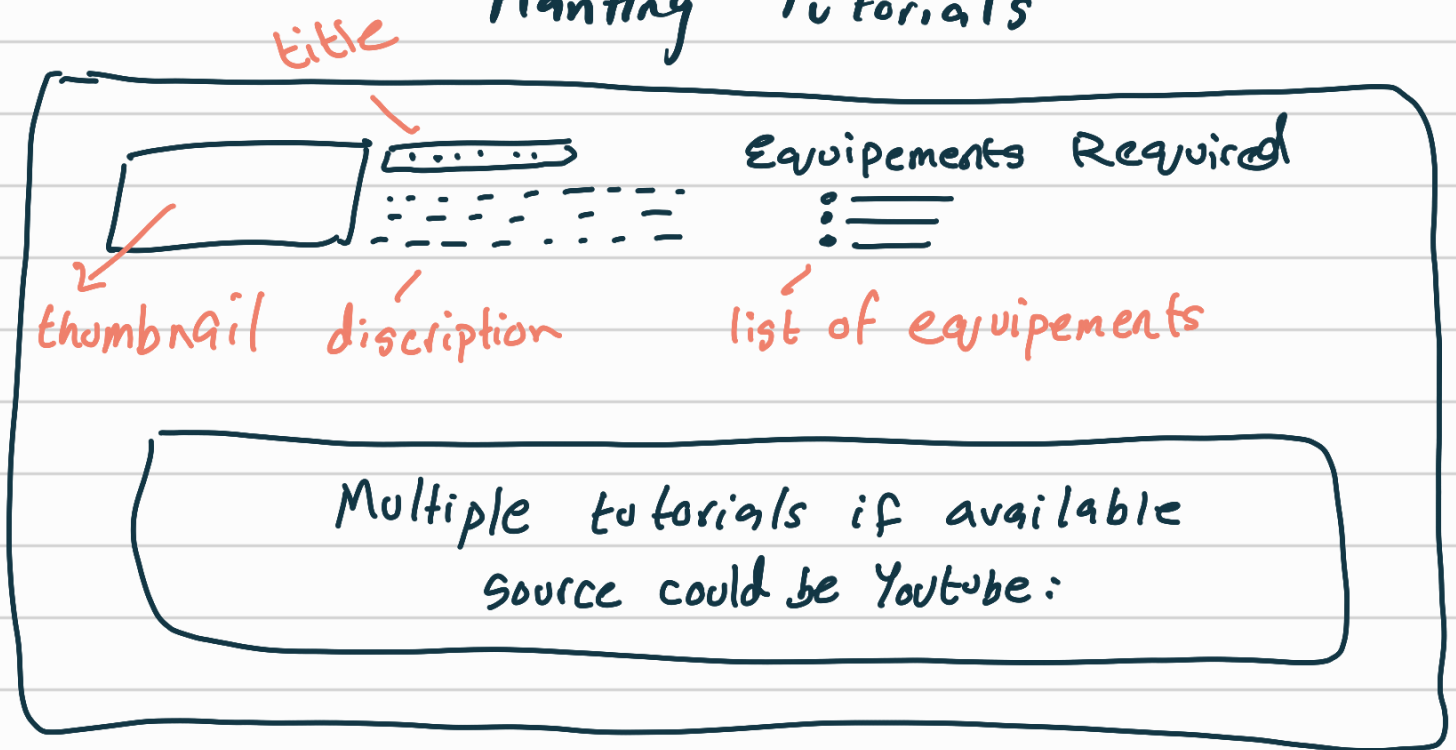 Planting Tutorials
title
Equipements Required
thumbnail discription list of equipements
Multiple tutorials if available
source could be Youtube: